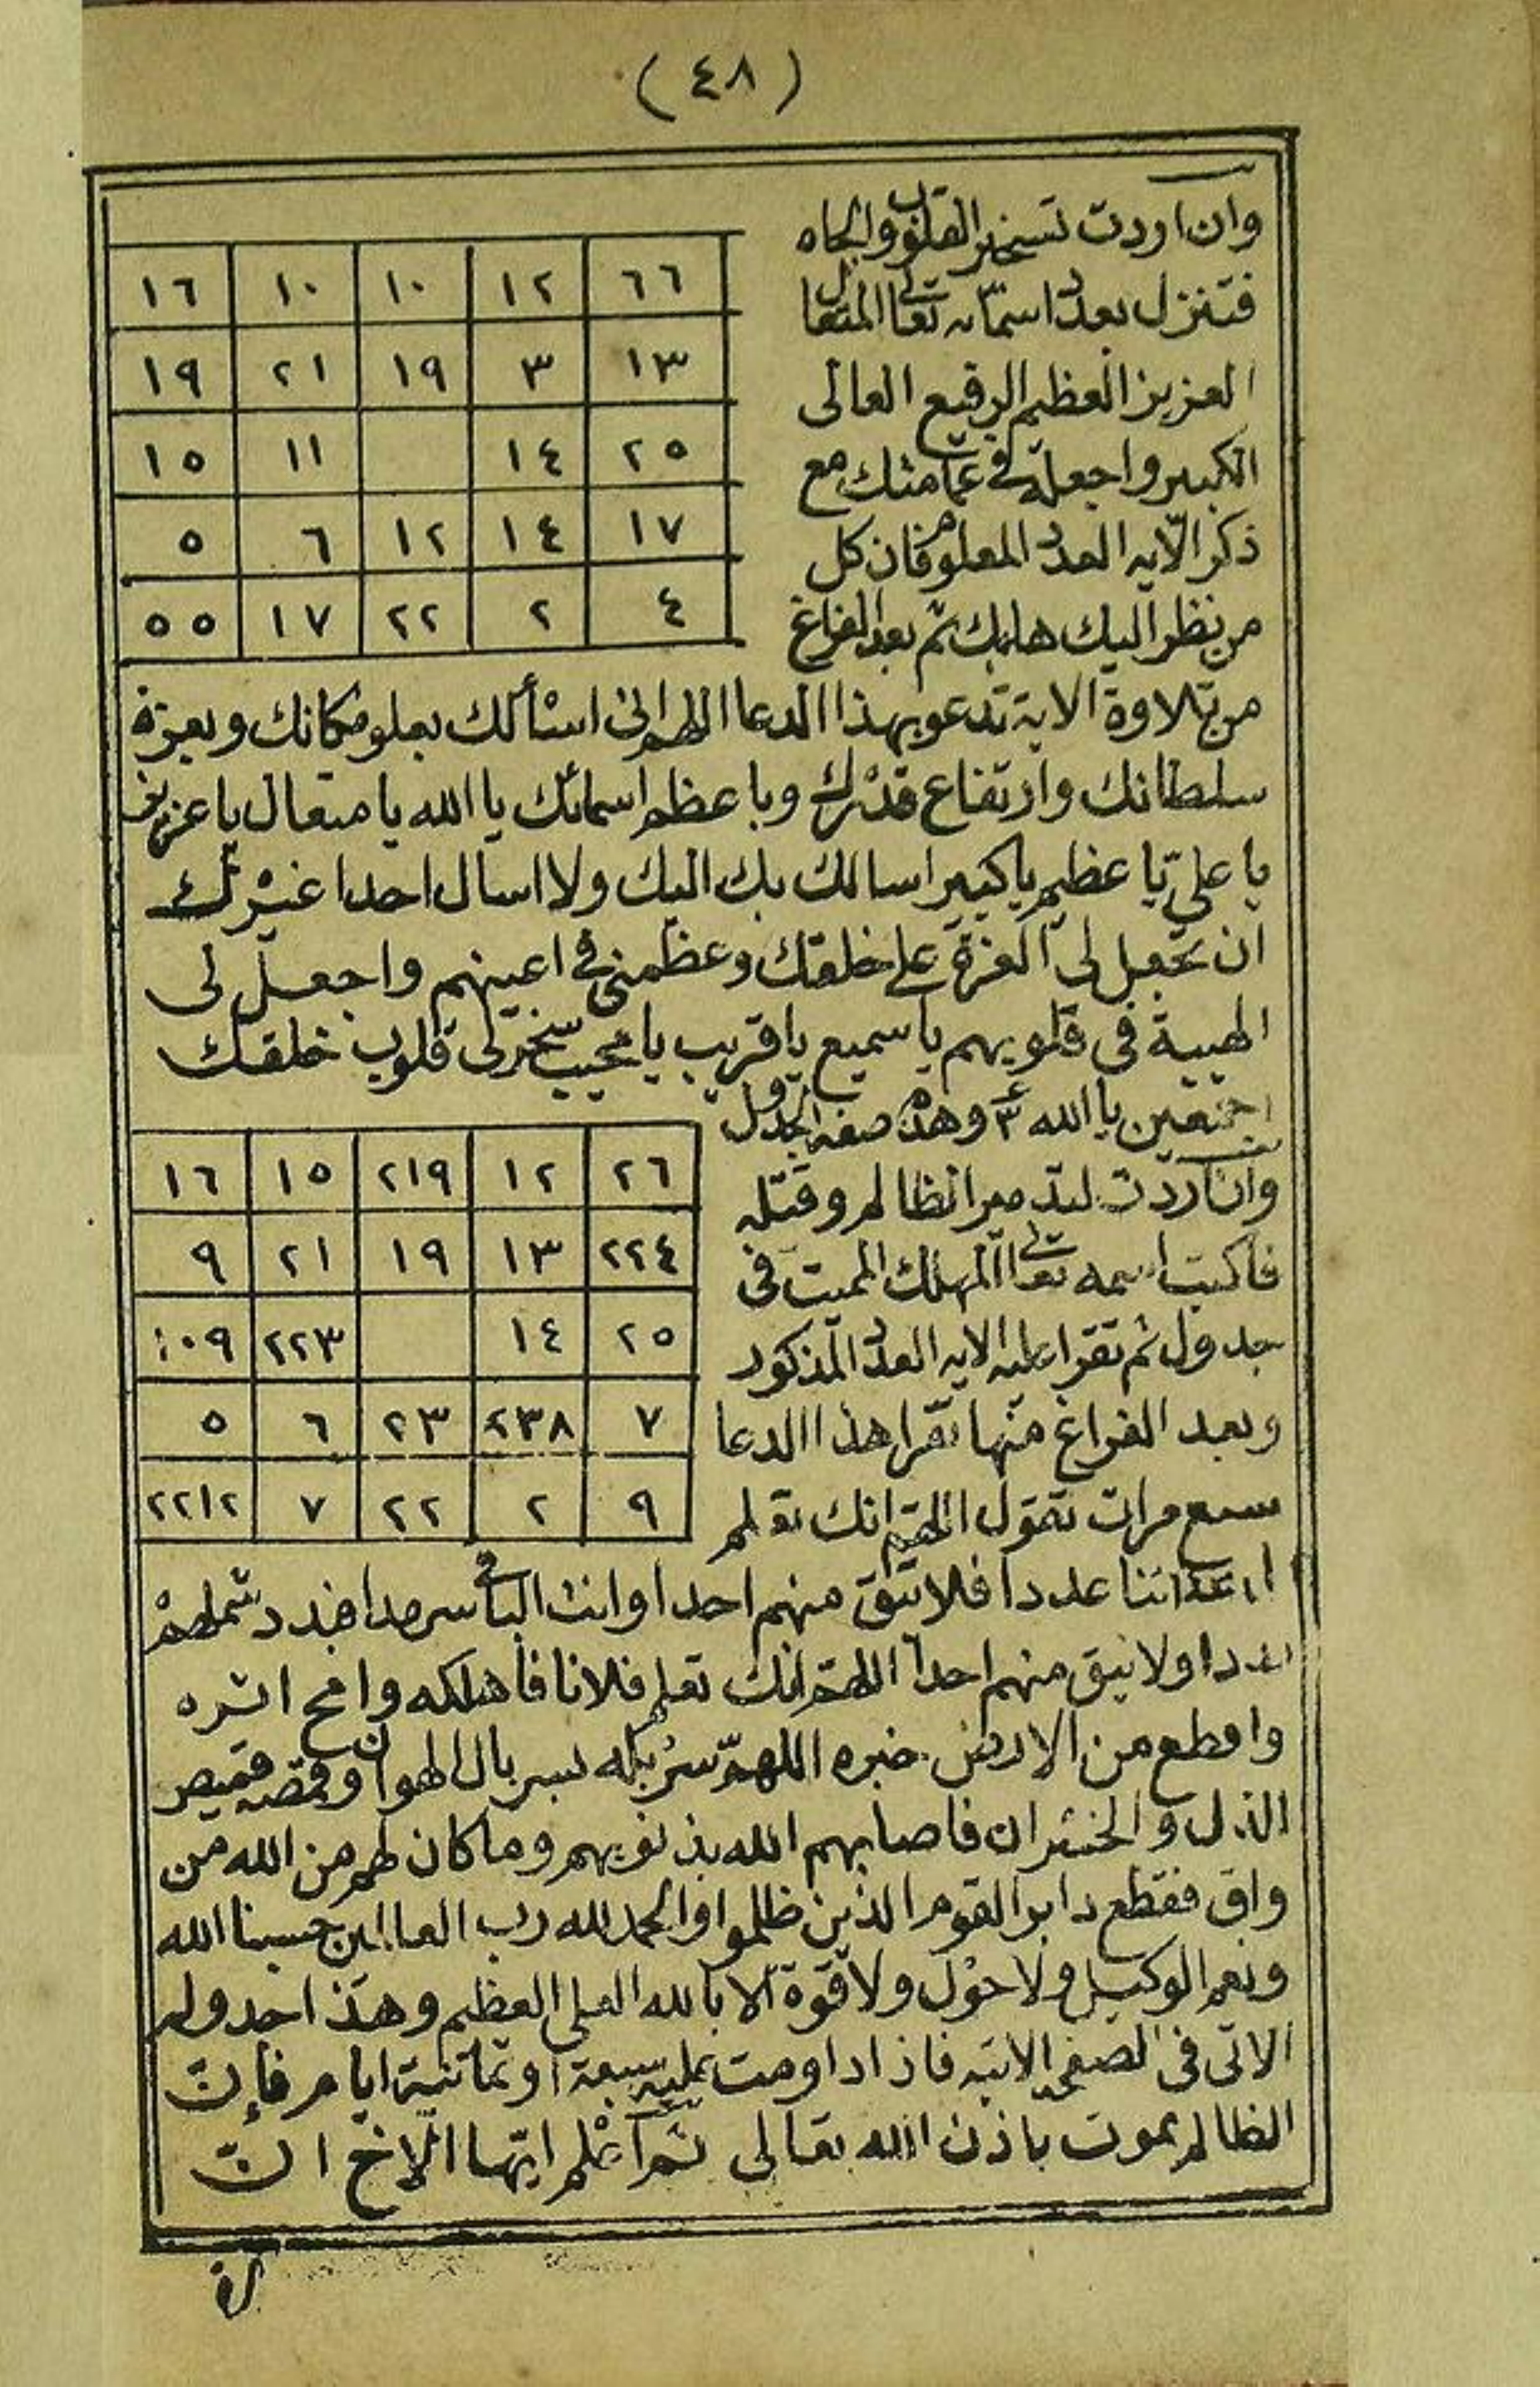 (٤٨)
وان اردت تسخير القلوب والجاه
فتنزل بعدد اسمائه تعالى المتعال
العزيز العظيم الرفيع العالى
الكبير واجعله فى عمامتك مع
ذكر الآيه العدد المعلوم فان كل
من نظر اليك هابك ثم بعد الفراغ
٦٦ ١٢ ١٠ ١٠ ١٦
١٣ ٣ ١٩ ٢١ ١٩
٢٥ ١٤ ١١ ١٥
١٧ ١٤ ١٢ ٦ ٥
٤ ٢ ٢٢ ١٧ ٥٥
من تلاوة الاية تدعو بهذا الدعا اللهم انى اسئألك بعلو مكانك وبعزة
سلطانك وارتفاع قدرك وباعظم اسمائك يا الله يا متعال يا عزيز
يا علىّ يا عظيم يا كبير اسالك بك اليك ولا اسال احدا غيرك
ان تجعل لى العزة على خلقك وعظمنى فى اعينهم واجعل لى
الهيبة فى قلوبهم يا سميع يا قريب يا مجيب سخر لى قلوب خلقك
اجمعين يا الله ٣ وهذه صفة الجدول
وان اردت لتدمير الظالم وقتله
فاكتب اسمه تعالى المهلك المميت فى
جدول ثم تقرا عليه الايه العدد المذكور
وبعد الفراغ منها تقرا هذا الدعا
سبع مرات تقول اللهم انك تعلم
٢٦ ١٢ ٢١٩ ١٥ ١٦
٢٢٤ ١٣ ١٩ ٢١ ٩
٢٥ ١٤ ٢٢٣ ١٠٩
٧ ٢٣٨ ٢٣ ٦ ٥
٩ ٢ ٢٢ ٧ ٢٢١٢
اعدائنا عددا فلا تبق منهم احدا وانت الباقى سرمدا فبدد شملهم
بددا ولا تبق منهم احدا اللهم انك تعلم فلانا فأهلكه وامح اثره
واقطع من الارض خبره اللهمّ سربله بسربال الهوان وقمصه قميص
الذل والخسران فاصابهم الله بذنوبهم وما كان لهم من الله من
واق فقطع دابر القوم الذين ظلموا والحمد لله رب العالمين حسبنا الله
ونعم الوكيل ولا حول ولا قوة الا بالله العلى العظيم وهذا جدوله
الاتى فى الصفحه الاتيه فاذا داومت عليه سبعة او ثمانية ايام فإن
الظالم يموت باذن الله تعالى ثم اعلم ايّها الآخ انّ